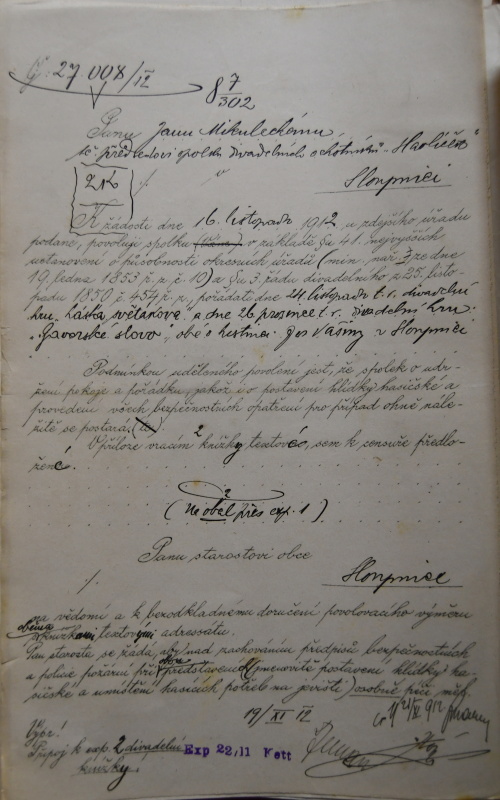 Č. 27.008/IV
8 7/302
Panu Janu Mikuleckému,
tč. předsedovi spolku divadelních ochotníků „Havlíček“
ve
Sloupnici
2 K
K žádosti dne 16. listopadu 1912 u zdejšího úřadu
podané, povoluji spolku v základě §u 41. nejvyšších
ustanovení o působnosti okresních úřadů (min. nař. ze dne
19. ledna 1853 ř. z. č. 10) a §u 3. řádu divadelního z 25. listo-
padu 1850 č. 454 ř. z., pořádati dne 24. listopadu t. r. divadelní
hru a dne 26. prosince t. r. divadelní hru
slovo“, obě v hostinci Jos. Vašiny v Sloupnici
Podmínkou uděleného povolení jest, že spolek o udr-
žení pokoje a pořádku, jakož i o postavení hlídky hasičské a
provedení všech bezpečnostních opatření pro případ ohně nále-
žitě se postará.
V příloze vracím 2 knížky textové, sem k censuře předlo-
žené.
2
(Na obal přes exp. 1)
Panu starostovi obce
Sloupnice
na vědomí a k bezodkladnému doručení povolovacího výměru
s knížkami textovými adresátu.
Pan starosta se žádá, aby nad zachováním předpisů bezpečnostních
a policie požární při představení (jmenovitě postavení hlídky ha-
sičské a umístění hasících potřeb na jevišti) osobně péči měl.
19/XI 12
Výpr!
Připoj k exp. 2 divadelní
knížky.
Exp 22/11 Nett